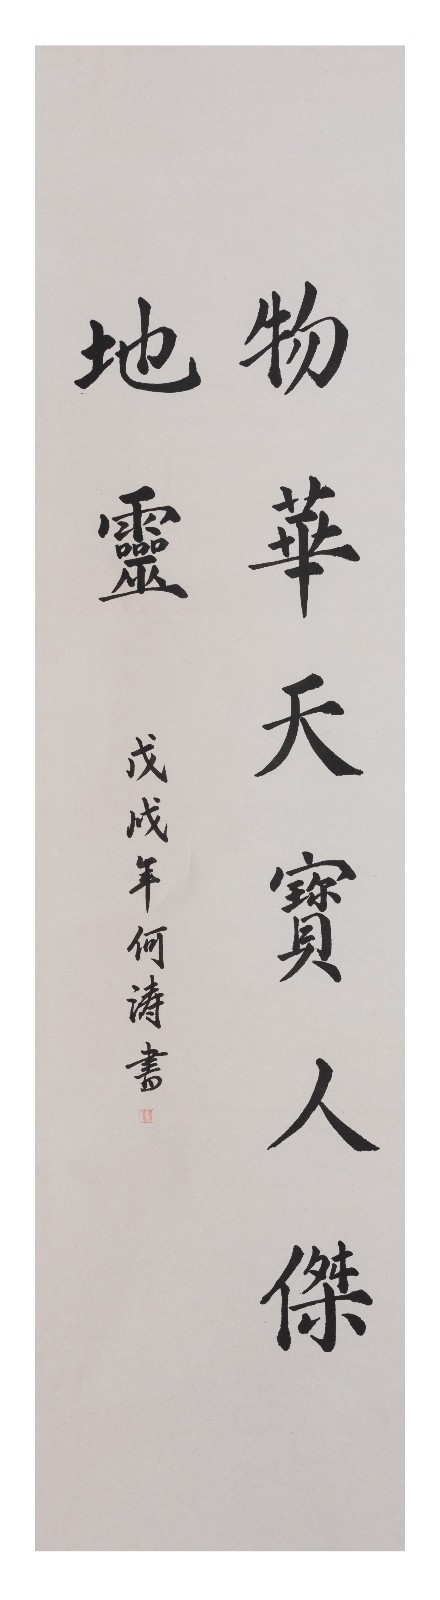 物華天寶人傑
地靈
戊戌年何濤書